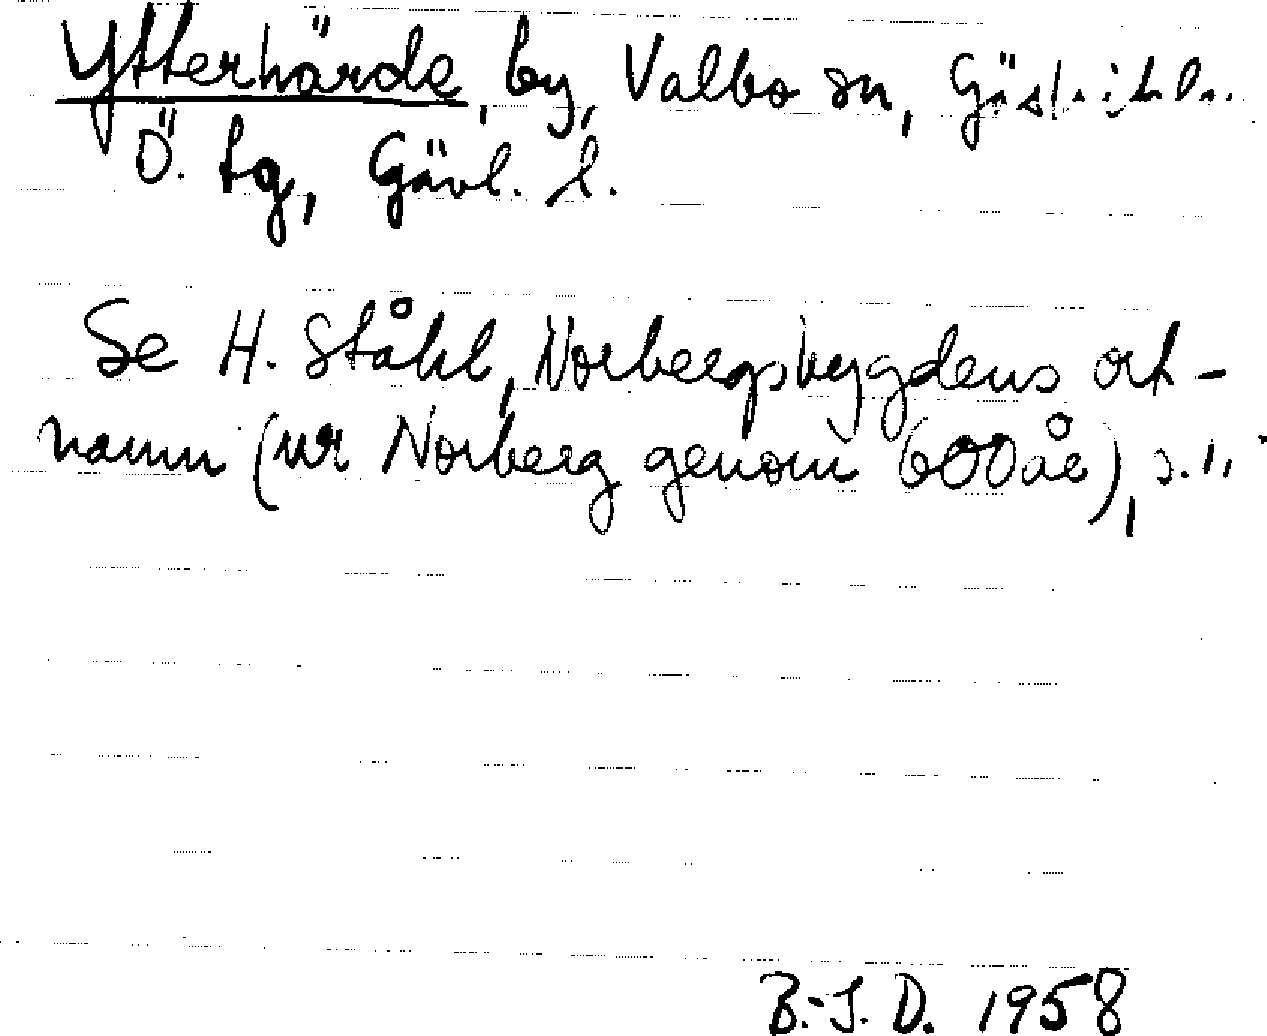 Ytterhärde, by, Valbo sn, Gästrikl.
Ö. tg, Gävl. l.
Se H. Ståhl, Norbergsbygdens ort-
namn (ur Norberg genom 600 år), s. 11
B.-J. D. 1958